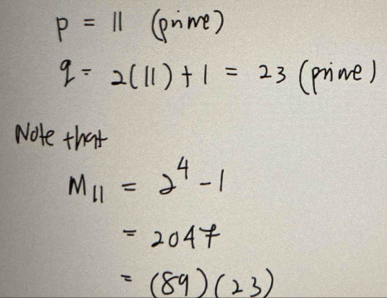 p = 11 (prime)
q = 2(11) + 1 = 23 (prime)
Note that
M₁₁ = 2⁴ - 1
= 2047
= (89)(23)